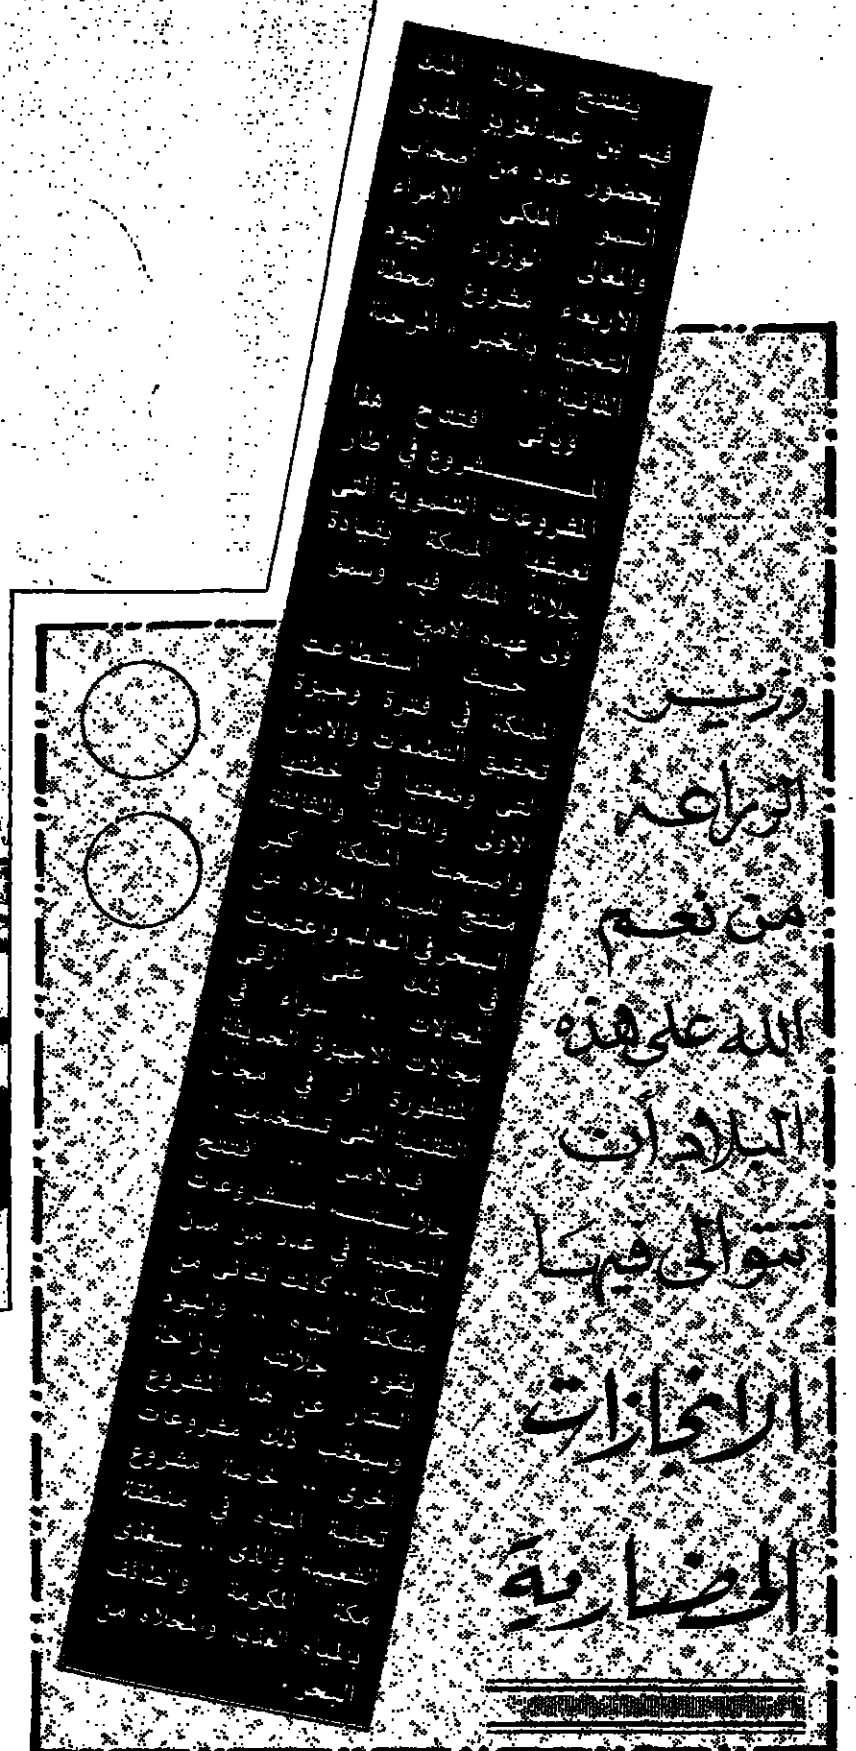 يفتتح جلالة الملك
فهد بن عبدالعزيز المفدى
بحضور عدد من اصحاب
السمو الملكى الامراء
والمعالى الوزراء اليوم
الاربعاء مشروع محطة
التحلية بالخبر .. المرحلة
الثانية ..
وياتى افتتاح هذا
المشروع في اطار
المشروعات التنموية التى
تعيشها المملكة بقيادة
جلالة الملك فهد وسمو
ولى عهده الامين .
حيث استطاعت
المملكة في فترة وجيزة
تحقيق التطلعات والامال
التى وضعتها في خططها
الاولى والثانية والثالثة
واصبحت المملكة اكبر
منتج للمياه المحلاه من
البحر في العالم واعتمدت
في ذلك على ارقى
المجالات .. سواء في
مجالات الاجهزة الحديثة
المتطورة او في مجال
التقنية التى تستخدمها .
فبالامس .. افتتح
جلالته مشروعات
للتحلية في عدد من مدن
المملكة .. كانت تعانى من
مشكلة المياه .. واليوم
يقوم جلالته بازاحة
الستار عن هذا المشروع
وسيعقب ذلك مشروعات
اخرى .. خاصة مشروع
تحلية المياه في منطقة
الشعيبة والذى .. سيغذى
مكة المكرمة والطائف
بالمياه العذبه والمحلاه من
البحر .
وزير
الزراعة
من نعم
الله على هذه
البلاد أن
تتوالى فيها
الانجازات
الحضارية